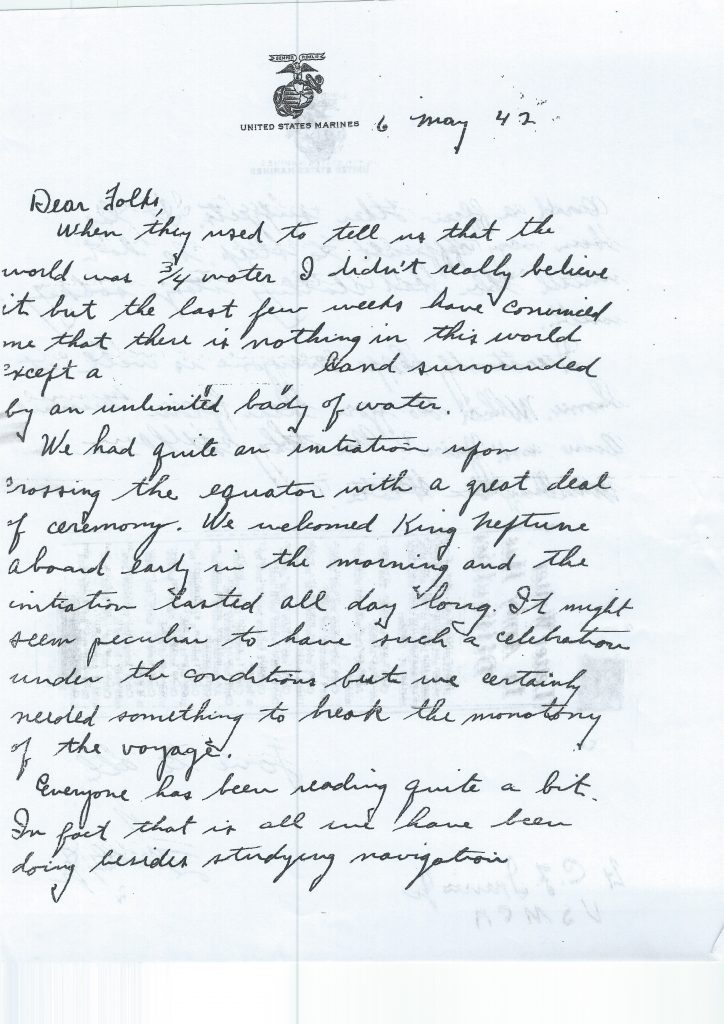 SEMPER FIDELIS
UNITED STATES MARINES
6 May 42
Dear Folks,
When they used to tell us that the
world was 3/4 water I didn't really believe
it but the last few weeks have convinced
me that there is nothing in this world
except a land surrounded
by an unlimited body of water.
We had quite an initiation upon
crossing the equator with a great deal
of ceremony. We welcomed King Neptune
aboard early in the morning and the
initiation lasted all day long. It might
seem peculiar to have such a celebration
under the conditions but we certainly
needed something to break the monotony
of the voyage.
Everyone has been reading quite a bit.
In fact that is all we have been
doing besides studying navigation